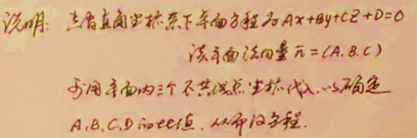 说明: 空间直角坐标系下平面方程为 Ax+By+CZ+D=0
该平面法向量 n=(A.B.C)
可用平面内三个不共线点坐标代入,以确定
A,B,C,D的比值.从而得方程.